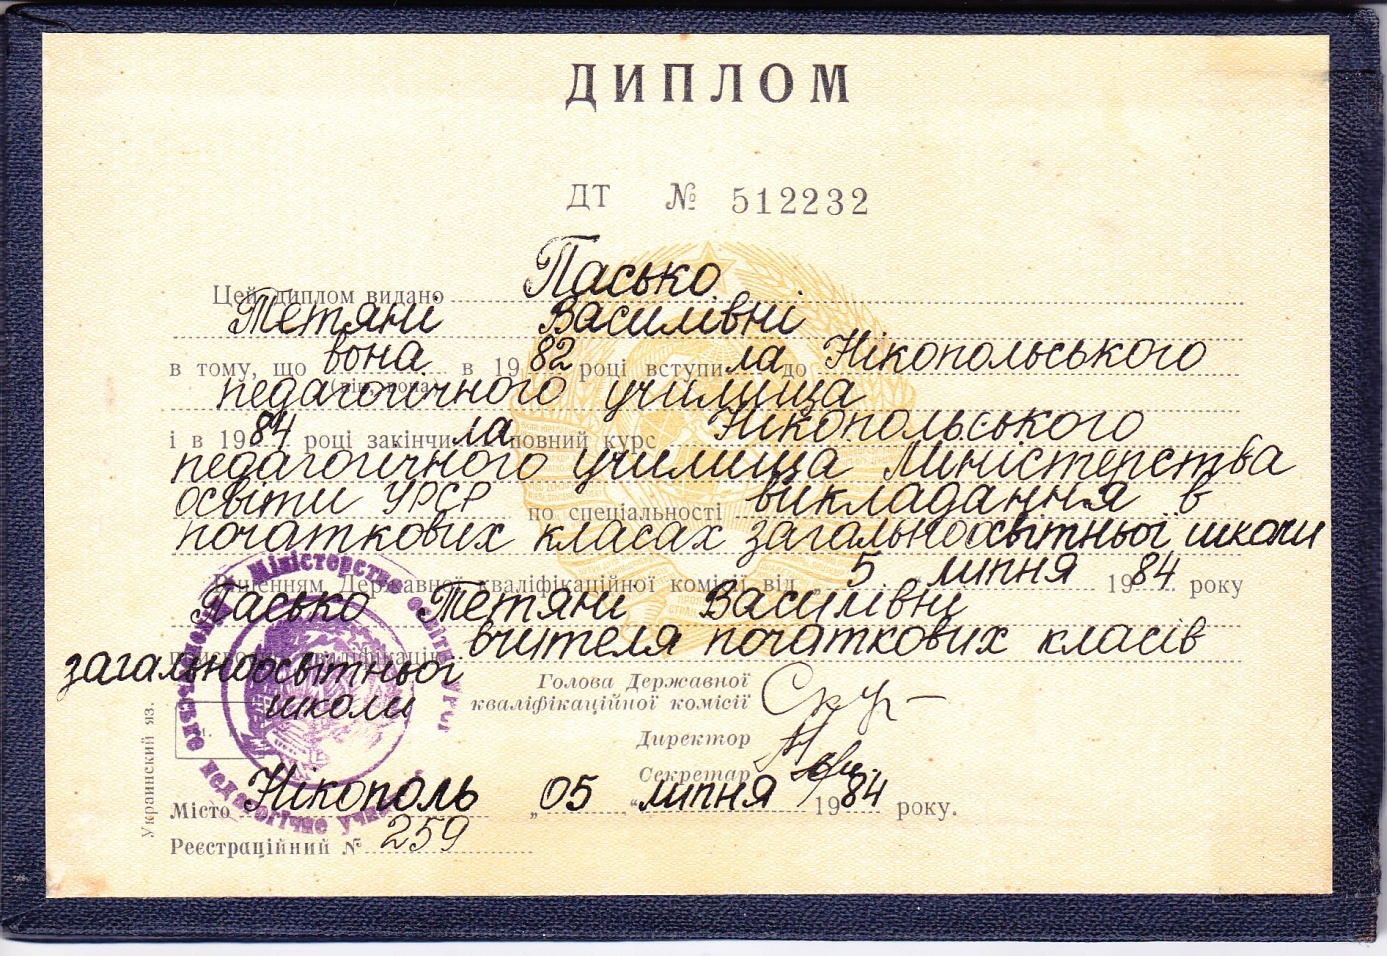 ДИПЛОМ
ДТ № 512232
Цей диплом видано Пасько
Тетяні Василівні
в тому, що вона в 1982 році вступила до Нікопольського
(він, вона)
педагогічного училища
і в 1984 році закінчила повний курс Нікопольського
педагогічного училища Міністерства
освіти УРСР по спеціальності викладання в
початкових класах загальноосвітньої школи
Рішенням Державної кваліфікаційної комісії від „5“ липня 1984 року
Пасько Тетяні Василівні
присвоєно кваліфікацію вчителя початкових класів
загальноосвітньої
школи
Голова Державної
кваліфікаційної комісії
Директор
Секретар
Місто Нікополь „05“ липня 1984 року.
Реєстраційний № 259
Украинский яз.
Міністерство освіти УРСР
педагогічне училище